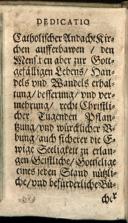 DEDICATIO
Catholischer Andacht Kir-
chen aufferbawen / den
Menschen aber zur Gott-
gefälligen Lebens / Han-
dels vnd Wandels erbal-
tung / besserung / vnd ver-
mehrung / recht Christli-
cher Tugenden Pflan-
tzung / vnd würcklicher V-
bung / auch sicherer die E-
wige Seeligkeit zu erlan-
gen Geistliche / Gottselige
eines jeden Stand nützli-
che / vnd befürderliche Bü-
cher